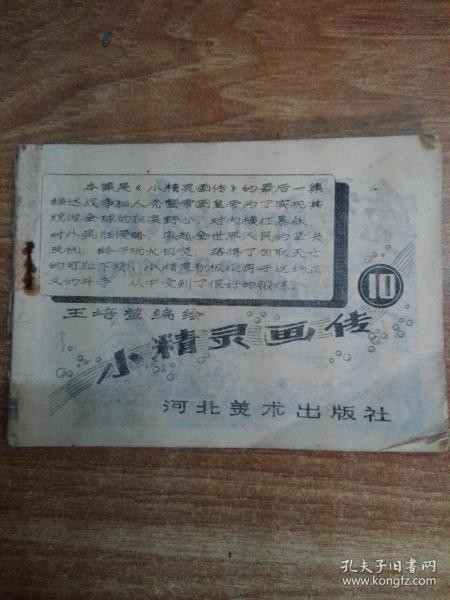 本集是《小精灵画传》的最后一集
描述战争狂人秃鹫帝国皇帝为了实现其
统治全球的狂妄野心，对内横征暴敛，
对外疯狂侵略，激起全世界人民的坚决
反抗，终于玩火自焚，落得了自取灭亡
的可耻下场，小精灵积极投身于这场正
义的斗争，从中受到了很好的锻炼。
10
王培堃编绘
小精灵画传
河北美术出版社
孔夫子旧书网
www.kongfz.com